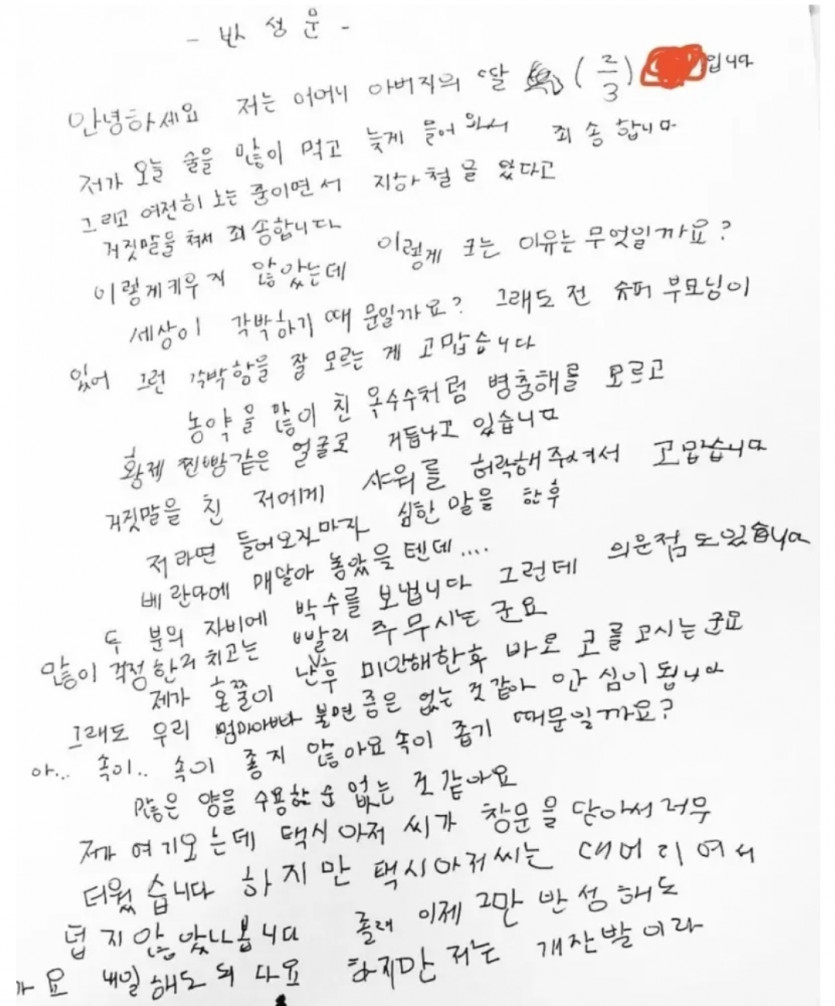 - 반성문 -
안녕하세요 저는 어머니 아버지의 딸 (2/3) 입니다
저가 오늘 술을 많이 먹고 늦게 들어와서 죄송합니다
그리고 여전히 노는 중이면서 지하철을 탔다고
거짓말을 쳐서 죄송합니다
이렇게키우지 않았는데 이렇게 크는 이유는 무엇일까요?
세상이 각박하기 때문일까요? 그래도 전 슈퍼 부모님이
있어 그런 각박함을 잘 모르는 게 고맙습니다
농약을 많이 친 옥수수처럼 병충해를 모르고
황제 찐빵같은 얼굴로 거듭나고 있습니다
거짓말을 친 저에게 샤워를 허락해주셔서 고맙습니다
저라면 들어오자마자 심한 말을 한후
베란다에 매달아 놓았을 텐데....
두 분의 자비에 박수를 보냅니다 그런데 의문점도있습니다
많이 걱정한거 치고는 빨리 주무시는군요
제가 혼쭐이 난후 미안해한후 바로 코를 고시는군요
그래도 우리 엄마아빠 불면증은 없는 것 같아 안심이 됩니다
아... 속이.. 속이 좋지 않아요 속이 좁기 때문일까요?
많은 양을 수용할 순 없는 것 같아요
제가 여기오는데 택시아저씨가 창문을 닫아서 너무
더웠습니다 하지만 택시아저씨는 대머리여서
덥지않았나봅니다 졸려 이제 그만 반성해도
까요 내일해도 되나요 하지만 저는 개잔발이라